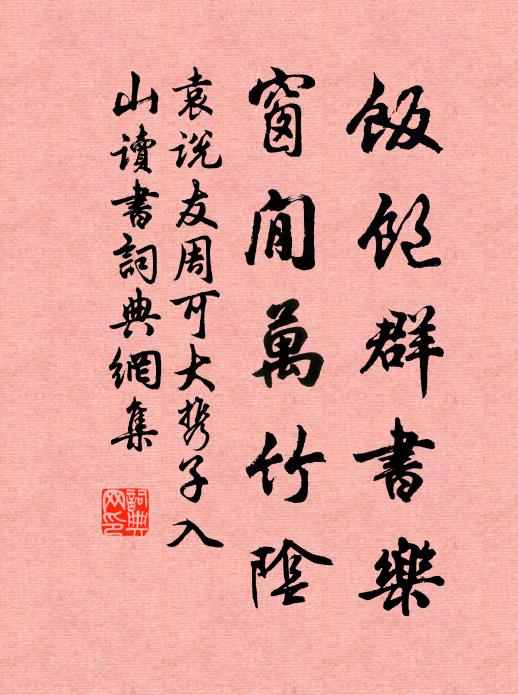 飯飽群書樂
窗閒萬竹陰
袁説友周可大携子入
山讀書詞典網集
詞典网印